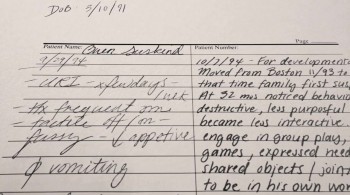 DOB: 5/10/91
Page
Patient Name: Owen Suskind
Patient Number:
9/29/94
URI - x few days - 1 wk
Hx frequent om
tactile off/on
fussy - ↓ appetite
∅ vomiting
10/7/94 - For development
Moved from Boston 11/93 to
that time family first sus
At 32 mos noticed behavio
destructive, less purposful
became less interactive.
engage in group play,
games, expressed need
shared objects / join
to be in his own wo